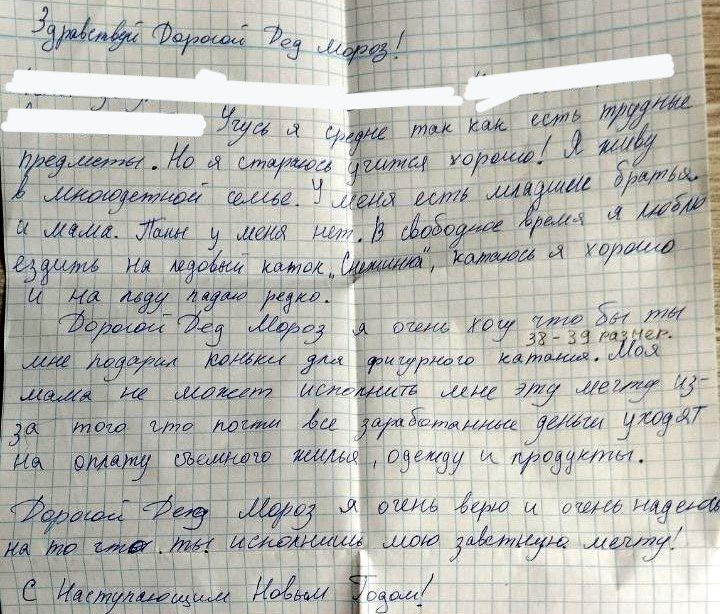 Здравствуй Дорогой Дед Мороз!
Учусь я средне так как есть трудные
предметы. Но я стараюсь учится хорошо! Я живу
в многодетной семье. У меня есть младшие братья
и мама. Папы у меня нет. В свободное время я люблю
ездить на ледовый каток „Снежинка“, катаюсь я хорошо
и на льду падаю редко.
Дорогой Дед Мороз я очень хочу что бы ты
38-39 размер.
мне подарил коньки для фигурного катания. Моя
мама не может исполнить мне эту мечту из-
за того что почти все заработанные деньги уходят
на оплату съемного жилья, одежду и продукты.
Дорогой Дед Мороз я очень верю и очень надеюсь
на то что ты исполнишь мою заветную мечту!
С Наступающим Новым Годом!